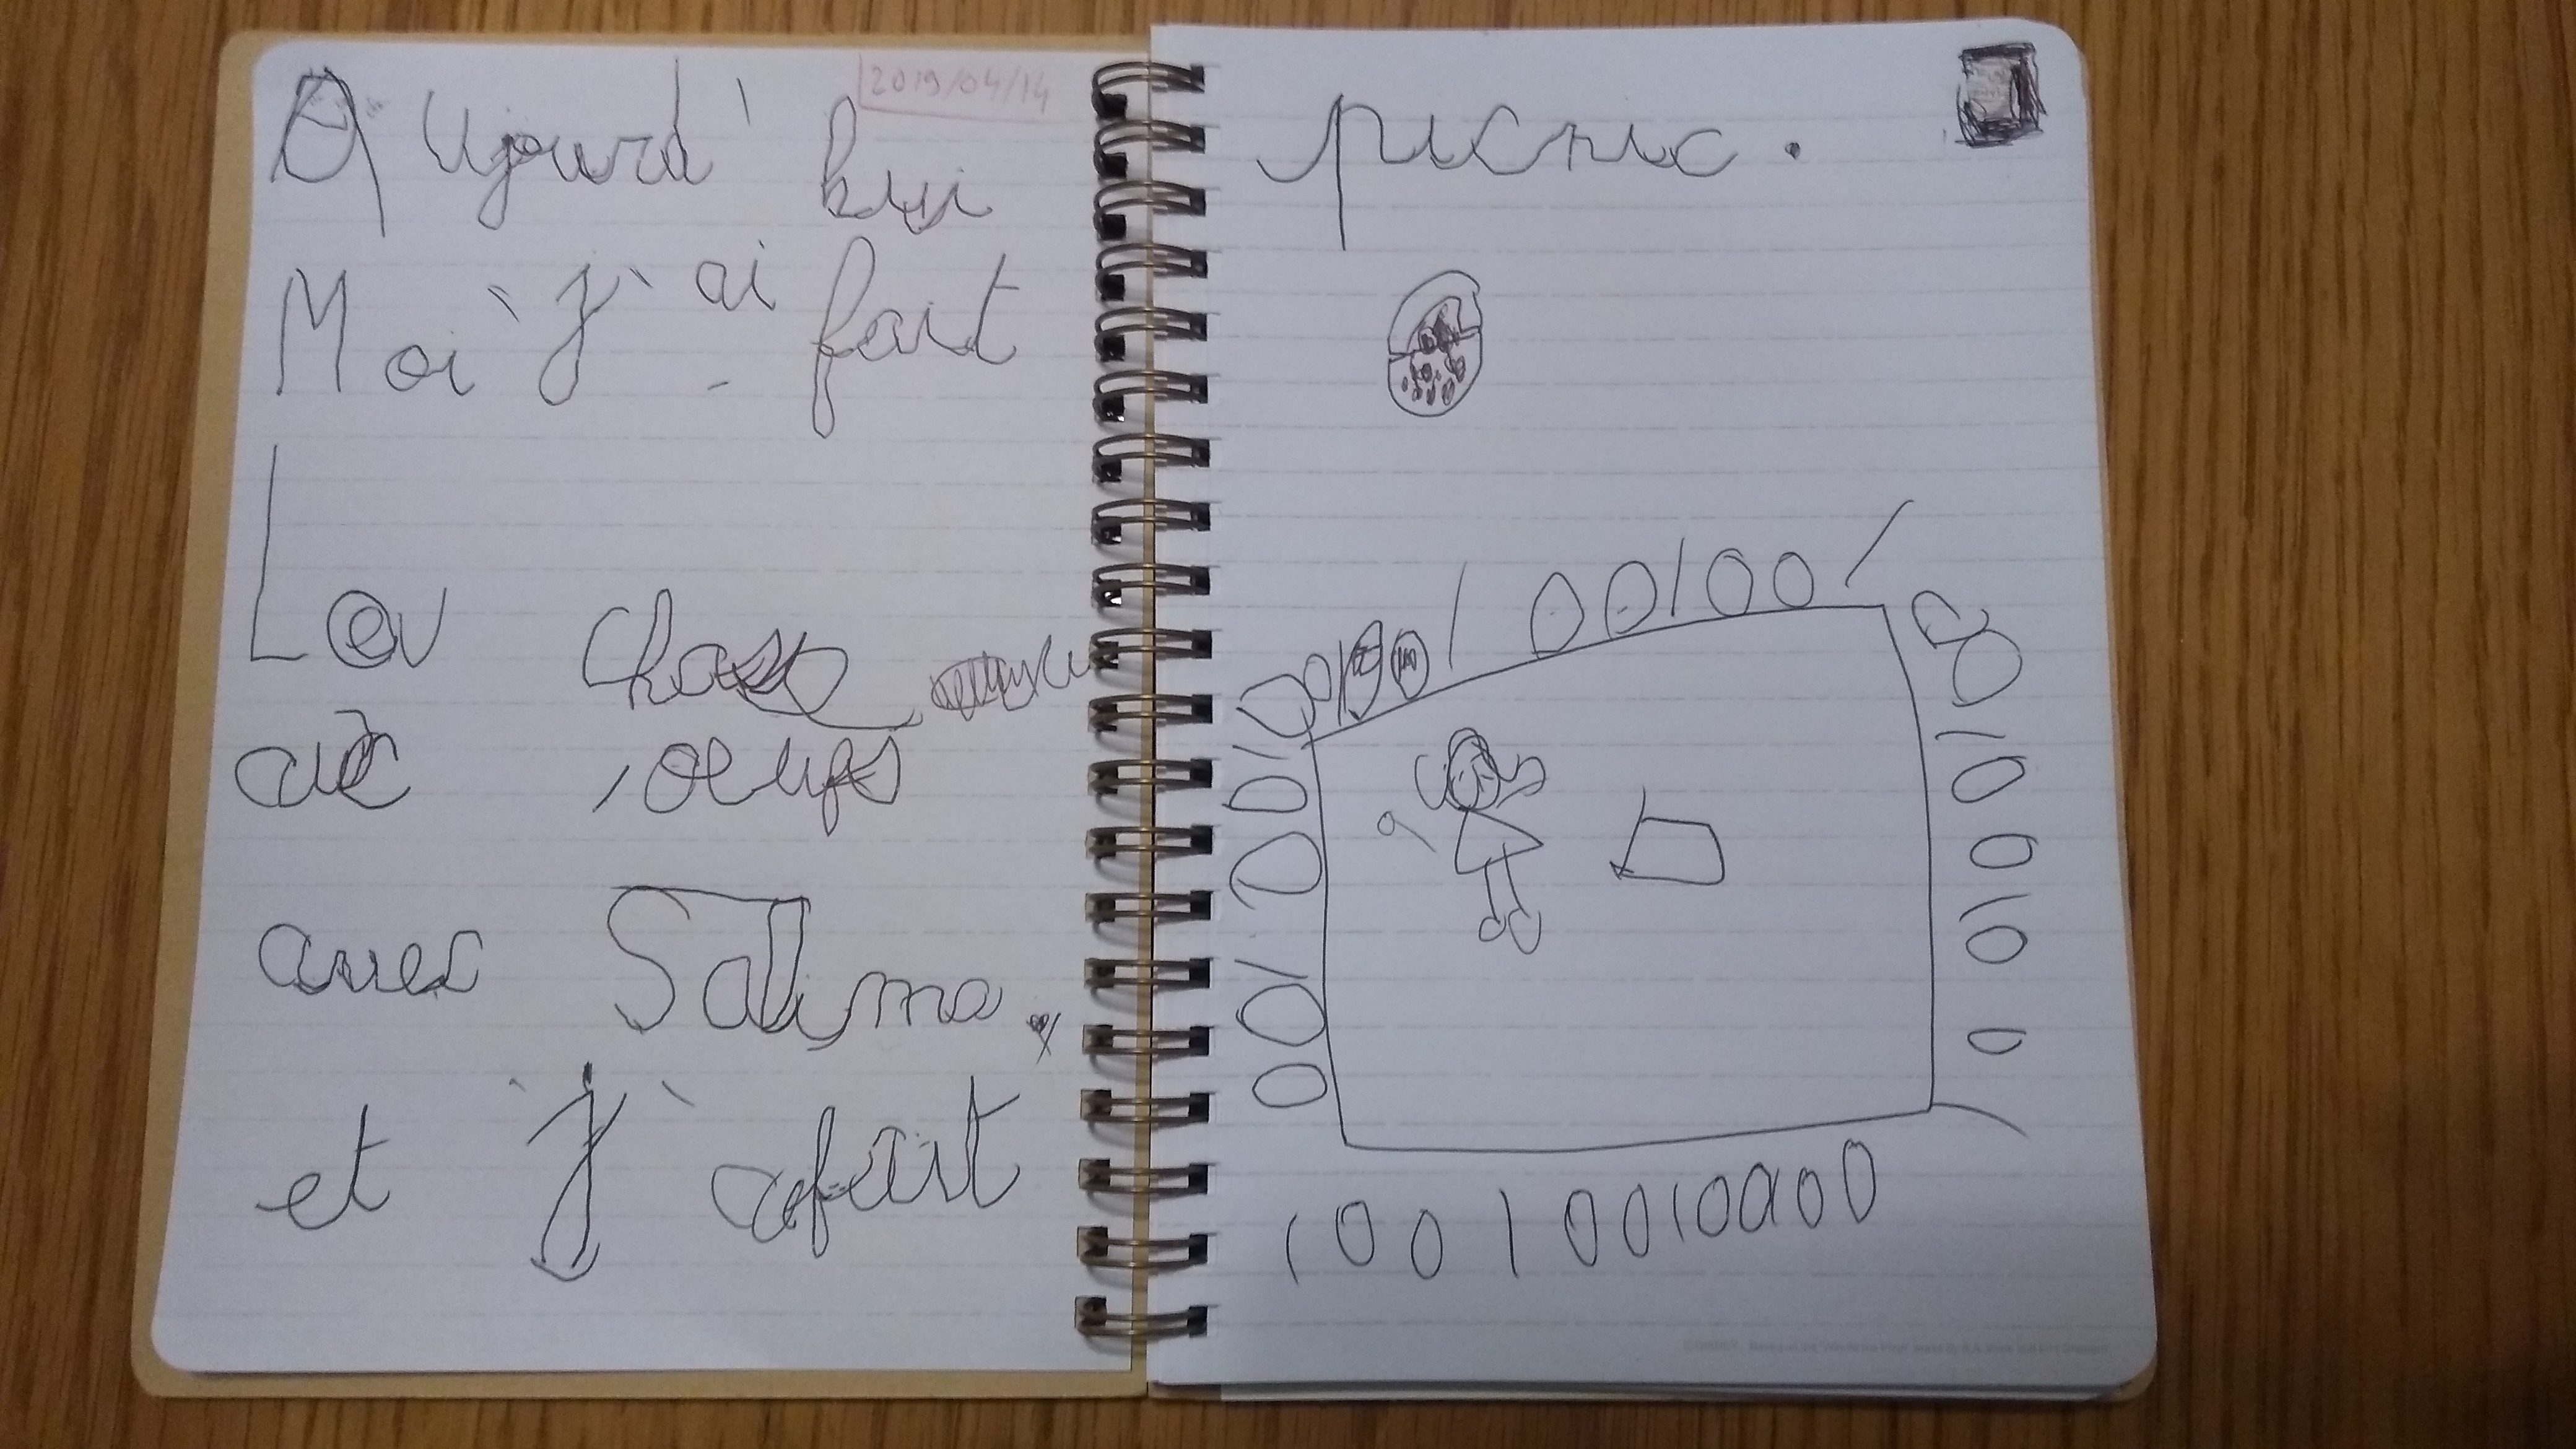 2019/04/14
Aujourd'hui
Moi j'ai fait
La chasse
aux oeufs
avec Salima.
et j'a fait
picnic.
/00/00/
/00/00/0000